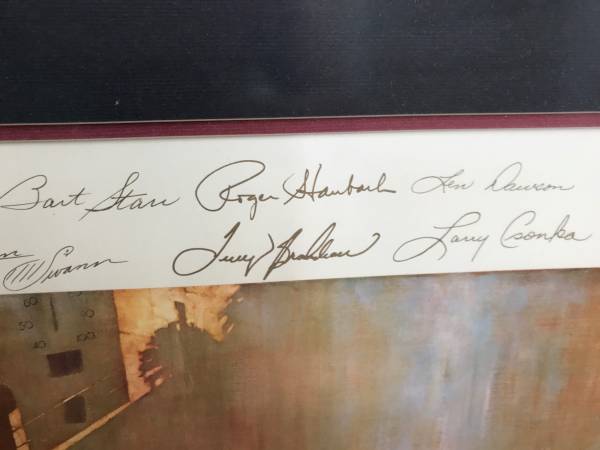 Bart Starr Roger Staubach Len Dawson
Swann Terry Bradshaw Larry Csonka
60
80
100